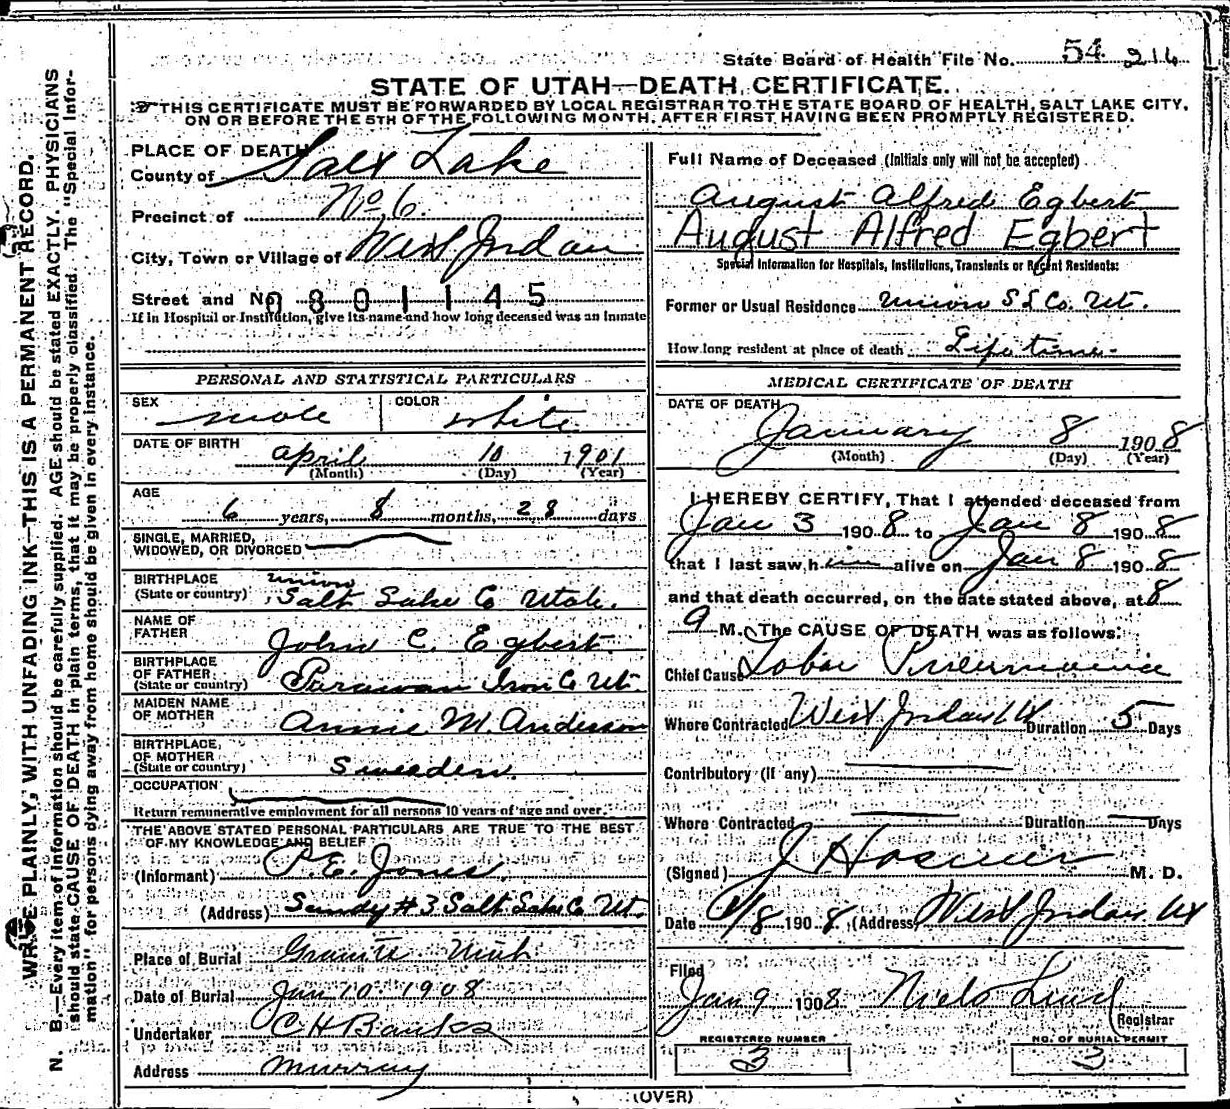 State Board of Health File No. 54 216
STATE OF UTAH—DEATH CERTIFICATE.
THIS CERTIFICATE MUST BE FORWARDED BY LOCAL REGISTRAR TO THE STATE BOARD OF HEALTH, SALT LAKE CITY,
ON OR BEFORE THE 5TH OF THE FOLLOWING MONTH, AFTER FIRST HAVING BEEN PROMPTLY REGISTERED.
WRITE PLAINLY, WITH UNFADING INK—THIS IS A PERMANENT RECORD.
N. B.—Every item of information should be carefully supplied. AGE should be stated EXACTLY. PHYSICIANS
should state CAUSE OF DEATH in plain terms, that it may be properly classified. The "Special Infor-
mation" for persons dying away from home should be given in every instance.
PLACE OF DEATH
County of Salt Lake
Precinct of No. 6.
City, Town or Village of West Jordan
Street and No. 0801145
If in Hospital or Institution, give its name and how long deceased was an inmate
PERSONAL AND STATISTICAL PARTICULARS
SEX male COLOR white
DATE OF BIRTH April 10 1901
(Month) (Day) (Year)
AGE
6 years, 8 months, 28 days
SINGLE, MARRIED,
WIDOWED, OR DIVORCED
BIRTHPLACE Union
(State or country) Salt Lake Co Utah.
NAME OF
FATHER John C. Egbert.
BIRTHPLACE
OF FATHER
(State or country) Parawan Iron Co Ut.
MAIDEN NAME
OF MOTHER Annie M. Anderson
BIRTHPLACE
OF MOTHER
(State or country) Sweeden.
OCCUPATION
Return remunerative employment for all persons 10 years of age and over.
THE ABOVE STATED PERSONAL PARTICULARS ARE TRUE TO THE BEST
OF MY KNOWLEDGE AND BELIEF
(Informant) P. E. Jones.
(Address) Sandy #3 Salt Lake Co Ut.
Place of Burial Granite Utah
Date of Burial Jan 10 1908
Undertaker C H Banks
Address Murray
Full Name of Deceased (Initials only will not be accepted)
August Alfred Egbert
August Alfred Egbert
Special Information for Hospitals, Institutions, Transients or Recent Residents:
Former or Usual Residence Union S L Co. Ut.
How long resident at place of death Life time.
MEDICAL CERTIFICATE OF DEATH
DATE OF DEATH
January 8 1908
(Month) (Day) (Year)
I HEREBY CERTIFY, That I attended deceased from
Jan 3 1908 to Jan 8 1908
that I last saw him alive on Jan 8 1908
and that death occurred, on the date stated above, at 8
M. The CAUSE OF DEATH was as follows:
Chief Cause Lobar Pneumonia
Where Contracted West Jordan Ut Duration 5 Days
Contributory (if any)
Where Contracted Duration Days
(Signed) M. D.
Date 1/8 1908. (Address) West Jordan Ut
Filed
Jan 9 1908 Niels Lind
Registrar
REGISTERED NUMBER
3
NO. OF BURIAL PERMIT
3
(OVER)